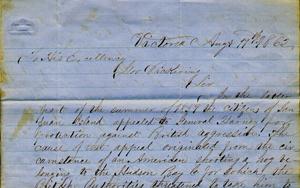 Victoria Aug 7th 1862
To His Excellency
Gov Pickering
Sir
In the latter
part of the summer of 1859 the citizens of San
Juan Island appealed to General Harney for
protection against British aggression. The
cause of that appeal originated from the cir
cumstance of an American shooting a hog be
longing to the Hudson Bay Co for which the
British Authorities threatened to